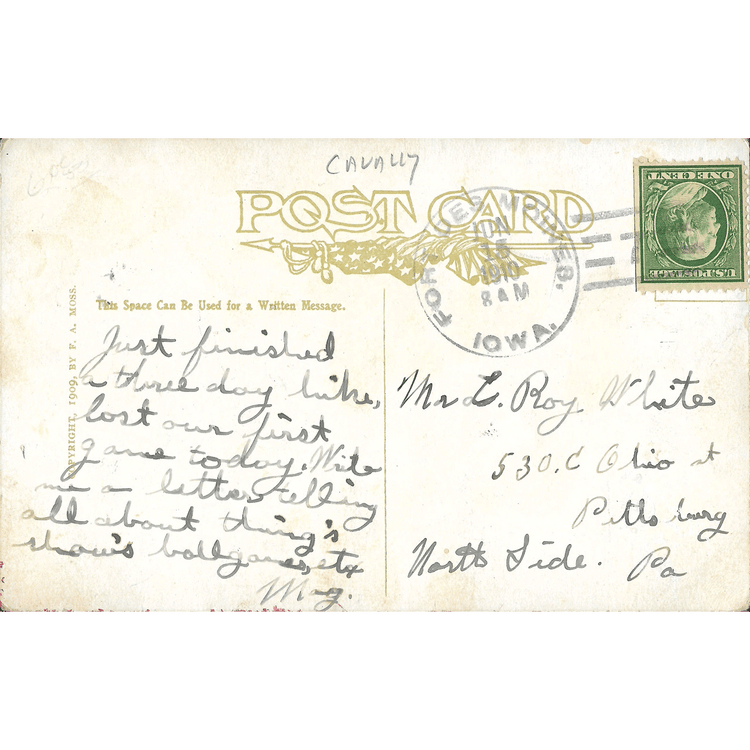 CAVALLY
POST CARD
FORT DES MOINES,
JUN
15
1910
8 AM
IOWA.
ONE CENT
U.S. POSTAGE
This Space Can Be Used for a Written Message.
COPYRIGHT, 1909, BY F. A. MOSS.
Just finished
a three day hike,
lost our first
game today. Write
me a letter telling
all about thing's
show's ballgames, etc
Mag.
Mr L. Roy White
530. E Ohio st
Pittsburg
North Side. Pa